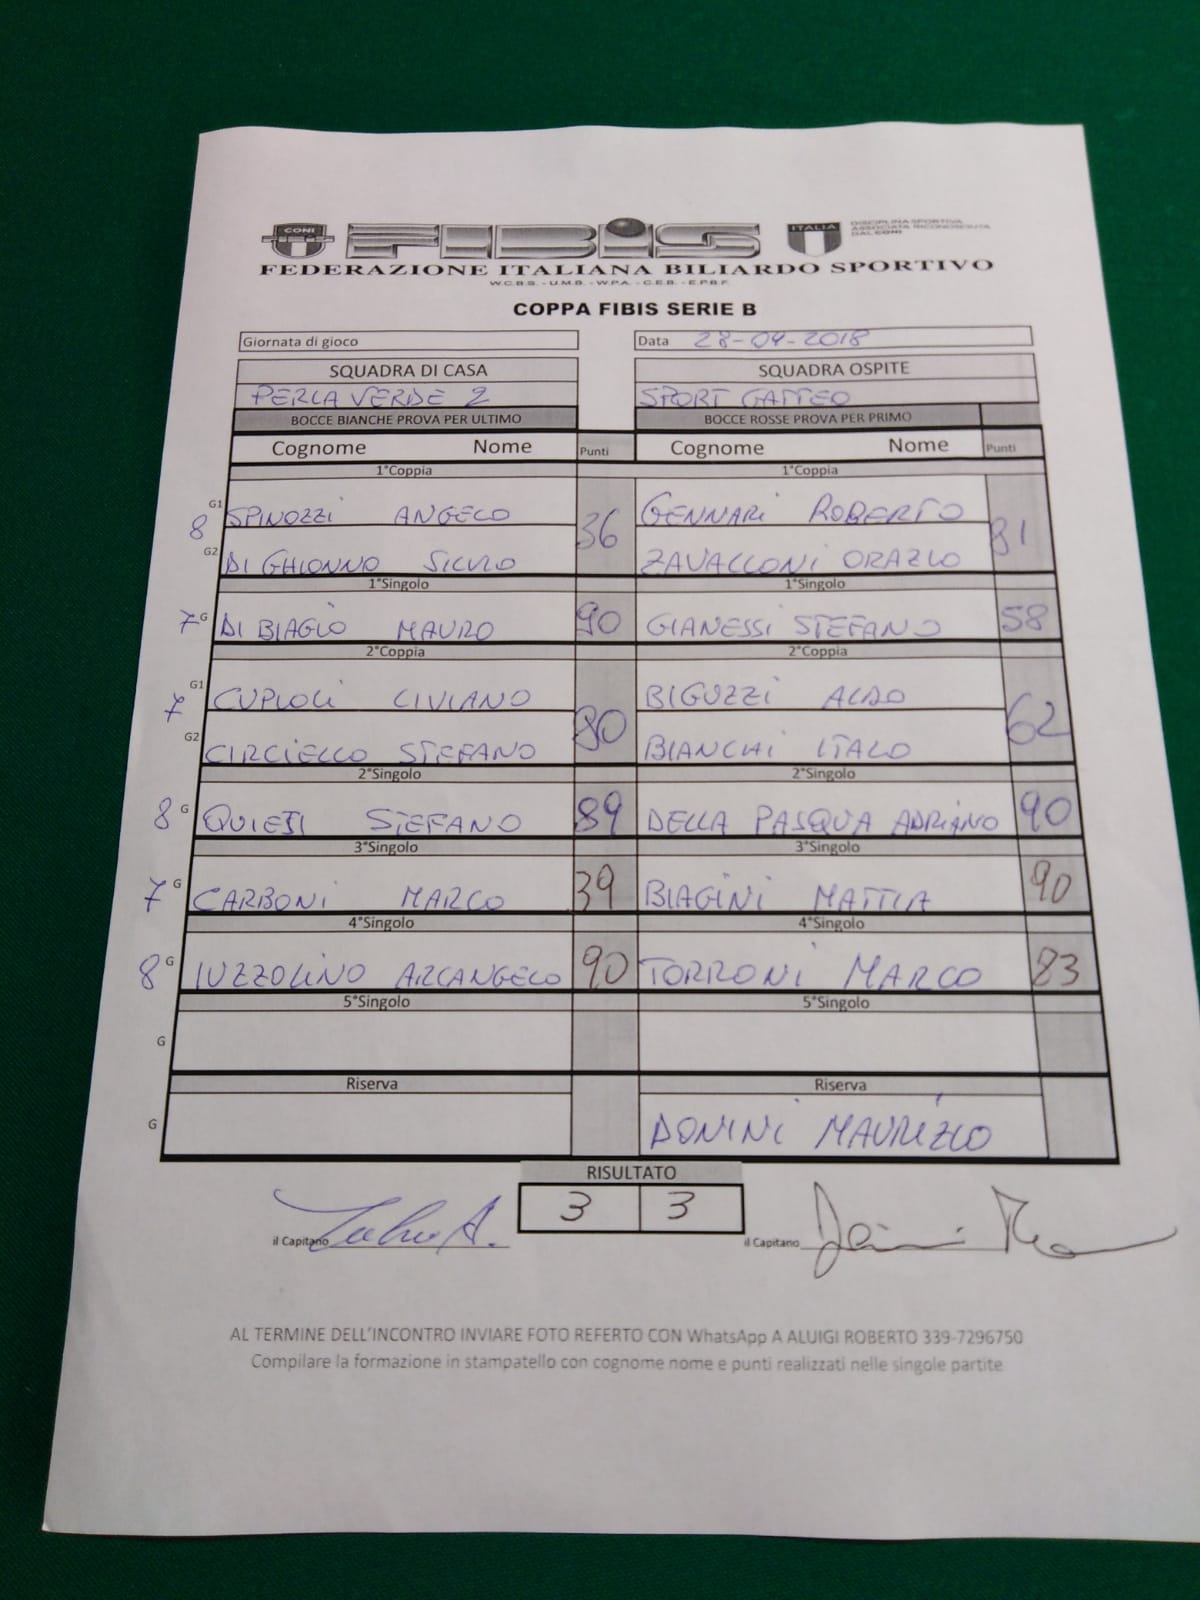 CONI
FIBIS
ITALIA
DISCIPLINA SPORTIVA
ASSOCIATA RICONOSCIUTA
DAL CONI
FEDERAZIONE ITALIANA BILIARDO SPORTIVO
W.C.B.S. - U.M.B. - W.P.A. - C.E.B. - E.P.B.F.
COPPA FIBIS SERIE B
Giornata di gioco Data 28-04-2018
SQUADRA DI CASA SQUADRA OSPITE
PERLA VERDE 2 SPORT GATTEO
BOCCE BIANCHE PROVA PER ULTIMO BOCCE ROSSE PROVA PER PRIMO
Cognome Nome Punti Cognome Nome Punti
1°Coppia 1°Coppia
G1 SPINOZZI ANGELO GENNARI ROBERTO
8 36 81
G2 DI GHIONNO SILVIO ZAVALLONI ORAZIO
1°Singolo 1°Singolo
7 G DI BIAGIO MAURO 90 GIANESSI STEFANO 58
2°Coppia 2°Coppia
G1 CUPIOLI LIVIANO BIGUZZI ALDO
7 80 62
G2 CIRCIELLO STEFANO BIANCHI ITALO
2°Singolo 2°Singolo
8 G STEFANO 89 DELLA PASQUA ADRIANO 90
3°Singolo 3°Singolo
7 G CARBONI MARCO 39 BIAGINI MATTIA 90
4°Singolo 4°Singolo
8 G IUZZOLINO ARCANGELO 90 TORRONI MARCO 83
5°Singolo 5°Singolo
G
Riserva Riserva
G DONINI MAURIZIO
RISULTATO
3 3
il Capitano il Capitano
AL TERMINE DELL'INCONTRO INVIARE FOTO REFERTO CON WhatsApp A ALUIGI ROBERTO 339-7296750
Compilare la formazione in stampatello con cognome nome e punti realizzati nelle singole partite